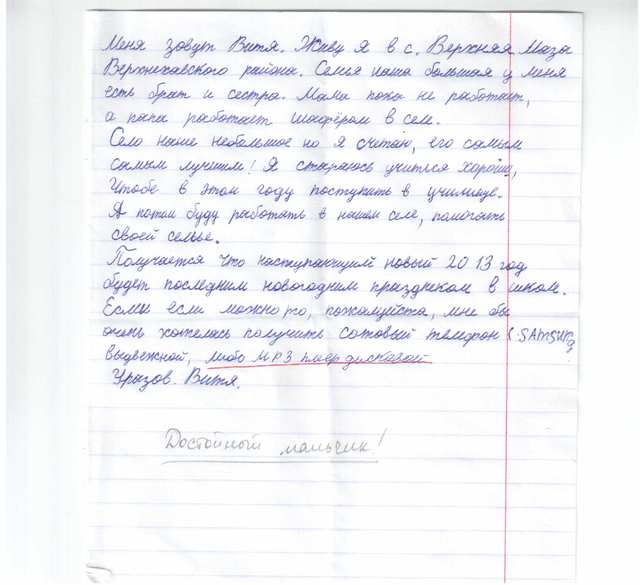 Меня зовут Витя. Живу я в с. Верхняя Маза
Верхнехавского района. Семья наша большая у меня
есть брат и сестра. Мама пока не работает,
а папа работает шофёром в селе.
Село наше небольшое но я считаю, его самым
самым лучшим! Я стараюсь учиться хорошо,
Чтобы в этом году поступить в училище.
А потом буду работать в нашем селе, помогать
своей семье.
Получается что наступающий новый 2013 год
будет последним новогодним праздником в школе.
Если если можно то, пожалуйста, мне бы
очень хотелось получить сотовый телефон (SAMSUNG
выдвежной, либо МР3 плеер дисковой
Уразов Витя.
Достойный мальчик!